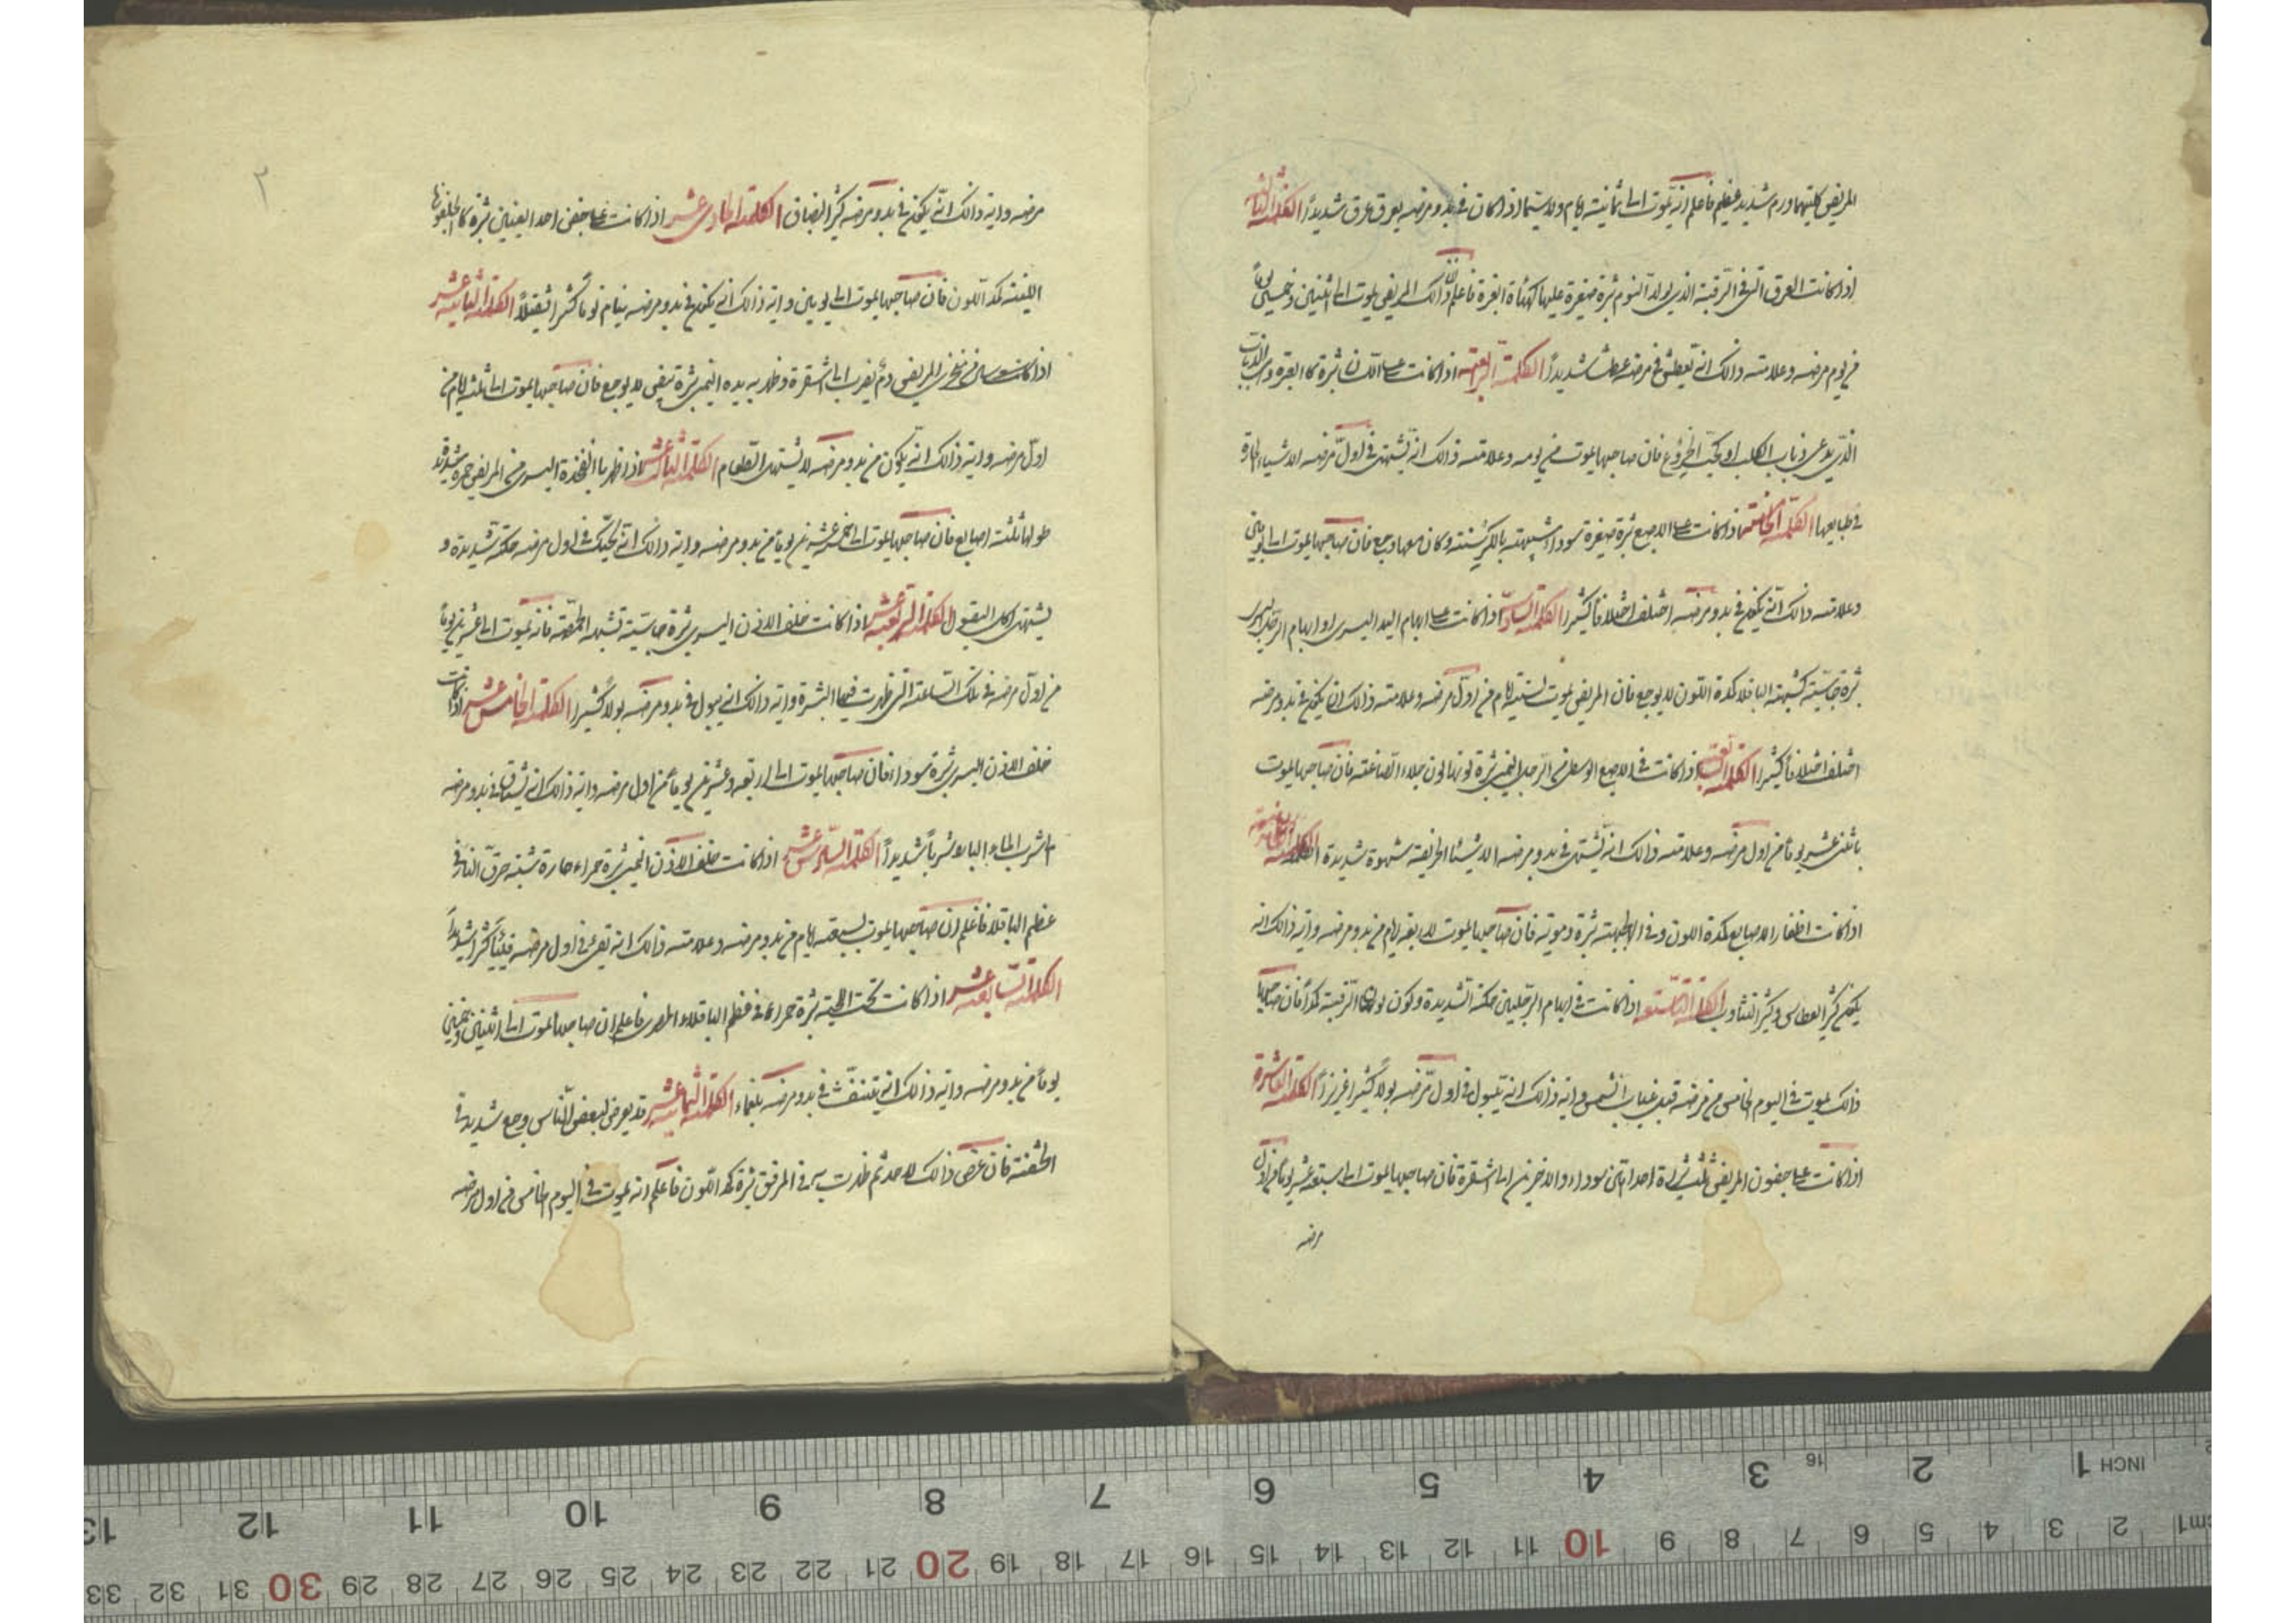 المريض كليتهما ورم شديد عظيم فاعلم انه يموت الى ثمانية ايام ولا سيما اذا كان في بدو مرضه يعرق عرق شديداً الكلمة الثالثة
اذا كانت العرق التي في الرقبة الذي يولد النوم بثرة صغيرة عليها كهيئاة فاعلم ان ذالك المريض يموت الى اثنين وخمسين يوماً
من يوم مرضه وعلامته ذالك انه يعطش في مرضه عطشا شديداً الكلمة الرابعة اذا كانت على اللسان بثرة كا
الذي يدعى ذباب الكلب او كحب الخروع فان صاحبها يموت من يومه وعلامته ذالك انه يشتهي في اول مرضه الاشياء الحارة
في طبايعها الكلمة الخامسة اذا كانت على الاصبع بثرة صغيرة سوداء شبيهة بالكرسنة وكان معها وجع فان صاحبها يموت الى يومين
وعلامته ذالك انه يكون في بدو مرضه اختلف اختلافاً كثيرا الكلمة السادسة اذا كانت على ابهام اليد اليسرى او ابهام الرجل اليسرى
بثرة جاسية كشبهة الباقلا كمدة اللون لا يوجع فان المريض يموت لستة ايام من اول مرضه وعلامته ذالك ان يكون في بدو مرضه
اختلف اختلافاً كثيرا الكلمة السابعة اذا كانت في الاصبع الوسطى من الرجل اليمنى بثرة لونها لون جلاء الصاغة فان صاحبها يموت
باثنى عشر يوماً من اول مرضه وعلامته ذالك انه يشتهي في بدو مرضه الاشيئا الحريفة شهوة شديدة الكلمة الثامنة
اذا كانت اظفار الاصابع كمدة اللون وفي الجبهة بثرة دموية فان صاحبها يموت لاربعة ايام من بدو مرضه واية ذالك انه
يكون كثير العطاس وكثير التثاوب الكلمة التاسعة اذا كانت في ابهام الرجلين حكة الشديدة ويكون لون الرقبة كمداً فان صاحبها
ذالك يموت في اليوم الخامس من مرضه قبل غياب الشمس واية ذالك انه يتبول في اول مرضه بولاً كثيرا غزيراً الكلمة العاشرة
اذا كانت على جفون المريض ثلث بثرة احداهن سوداء والاخرين الى اشقرة فان صاحبها يموت الى سبعة عشر يوماً من اول
مرضه
مرضه واية ذالك انه يكون في بدو مرضه كثير البصاق الكلمة الحادى عشر اذا كانت على جفن احد العينين بثرة كا
اللينة كمد اللون فان صاحبها يموت الى يومين واية ذالك انه يكون في بدو مرضه ينام نوماً كثيرا ثقيلاً الكلمة الثانية عشر
اذا كانت من منخري المريض دم يضرب الى اشقرة وظهر به بيده اليمنى بثرة تبقى لا يوجع فان صاحبها يموت الى ثلثة ايام من
اول مرضه واية ذالك انه يكون من بدو مرضه لا يشتهى الطعام الكلمة الثالث عشر اذا ظهر بالفخذة اليسرى من المريض حمرة شديدة
طولها ثلثة اصابع فان صاحبها يموت الى خمس عشرين يوماً من بدو مرضه واية ذالك انه يحتك في اول مرضه حكة شديدة و
يشتهى اكل البقول الكلمة الرابعة عشر اذا كانت خلف الاذن اليسرى بثرة جاسية تشبه الحمصة فانه يموت الى عشرين يوماً
من اول مرضه في تلك الساعة التي ظهرت فيها البثرة واية ذالك انه يبول في بدو مرضه بولاً كثيرا الكلمة الخامس عشر اذا كانت
خلف الاذن اليسرى بثرة سوداء فان صاحبها يموت الى اربعة وعشرين يوماً من اول مرضه واية ذالك انه يشتاق في بدو مرضه
اشرب الماء البارد شرباً شديداً الكلمة السادس عشر اذا كانت خلف الاذن اليمنى بثرة حمراء حارة شبه حرق النار في
عظم الباقلا فاعلم ان صاحبها يموت لسبعة ايام من بدو مرضه وعلامته ذالك انه تقئ في اول مرضه قيئاً كثيرا شديداً
الكلمة السابعة عشر اذا كانت تحت اللحية بثرة حمراء في عظم الباقلاء المصرى فاعلم ان صاحبها يموت الى اثنين وخمسين
يوماً من بدو مرضه واية ذالك انه يتنفث في بدو مرضه بلغماء الكلمة الثمانية عشر قد يعرض لبعض الناس وجع شديد في
فان عرض ذالك لاحد ثم ظهرت به في المرفق بثرة كمد اللون فاعلم انه يموت في اليوم الخامس من اول مرضه
٢
INCH 1 2 3 4 5 6 7 8 9 10 11 12 13
16
cm1 2 3 4 5 6 7 8 9 10 11 12 13 14 15 16 17 18 19 20 21 22 23 24 25 26 27 28 29 30 31 32 33